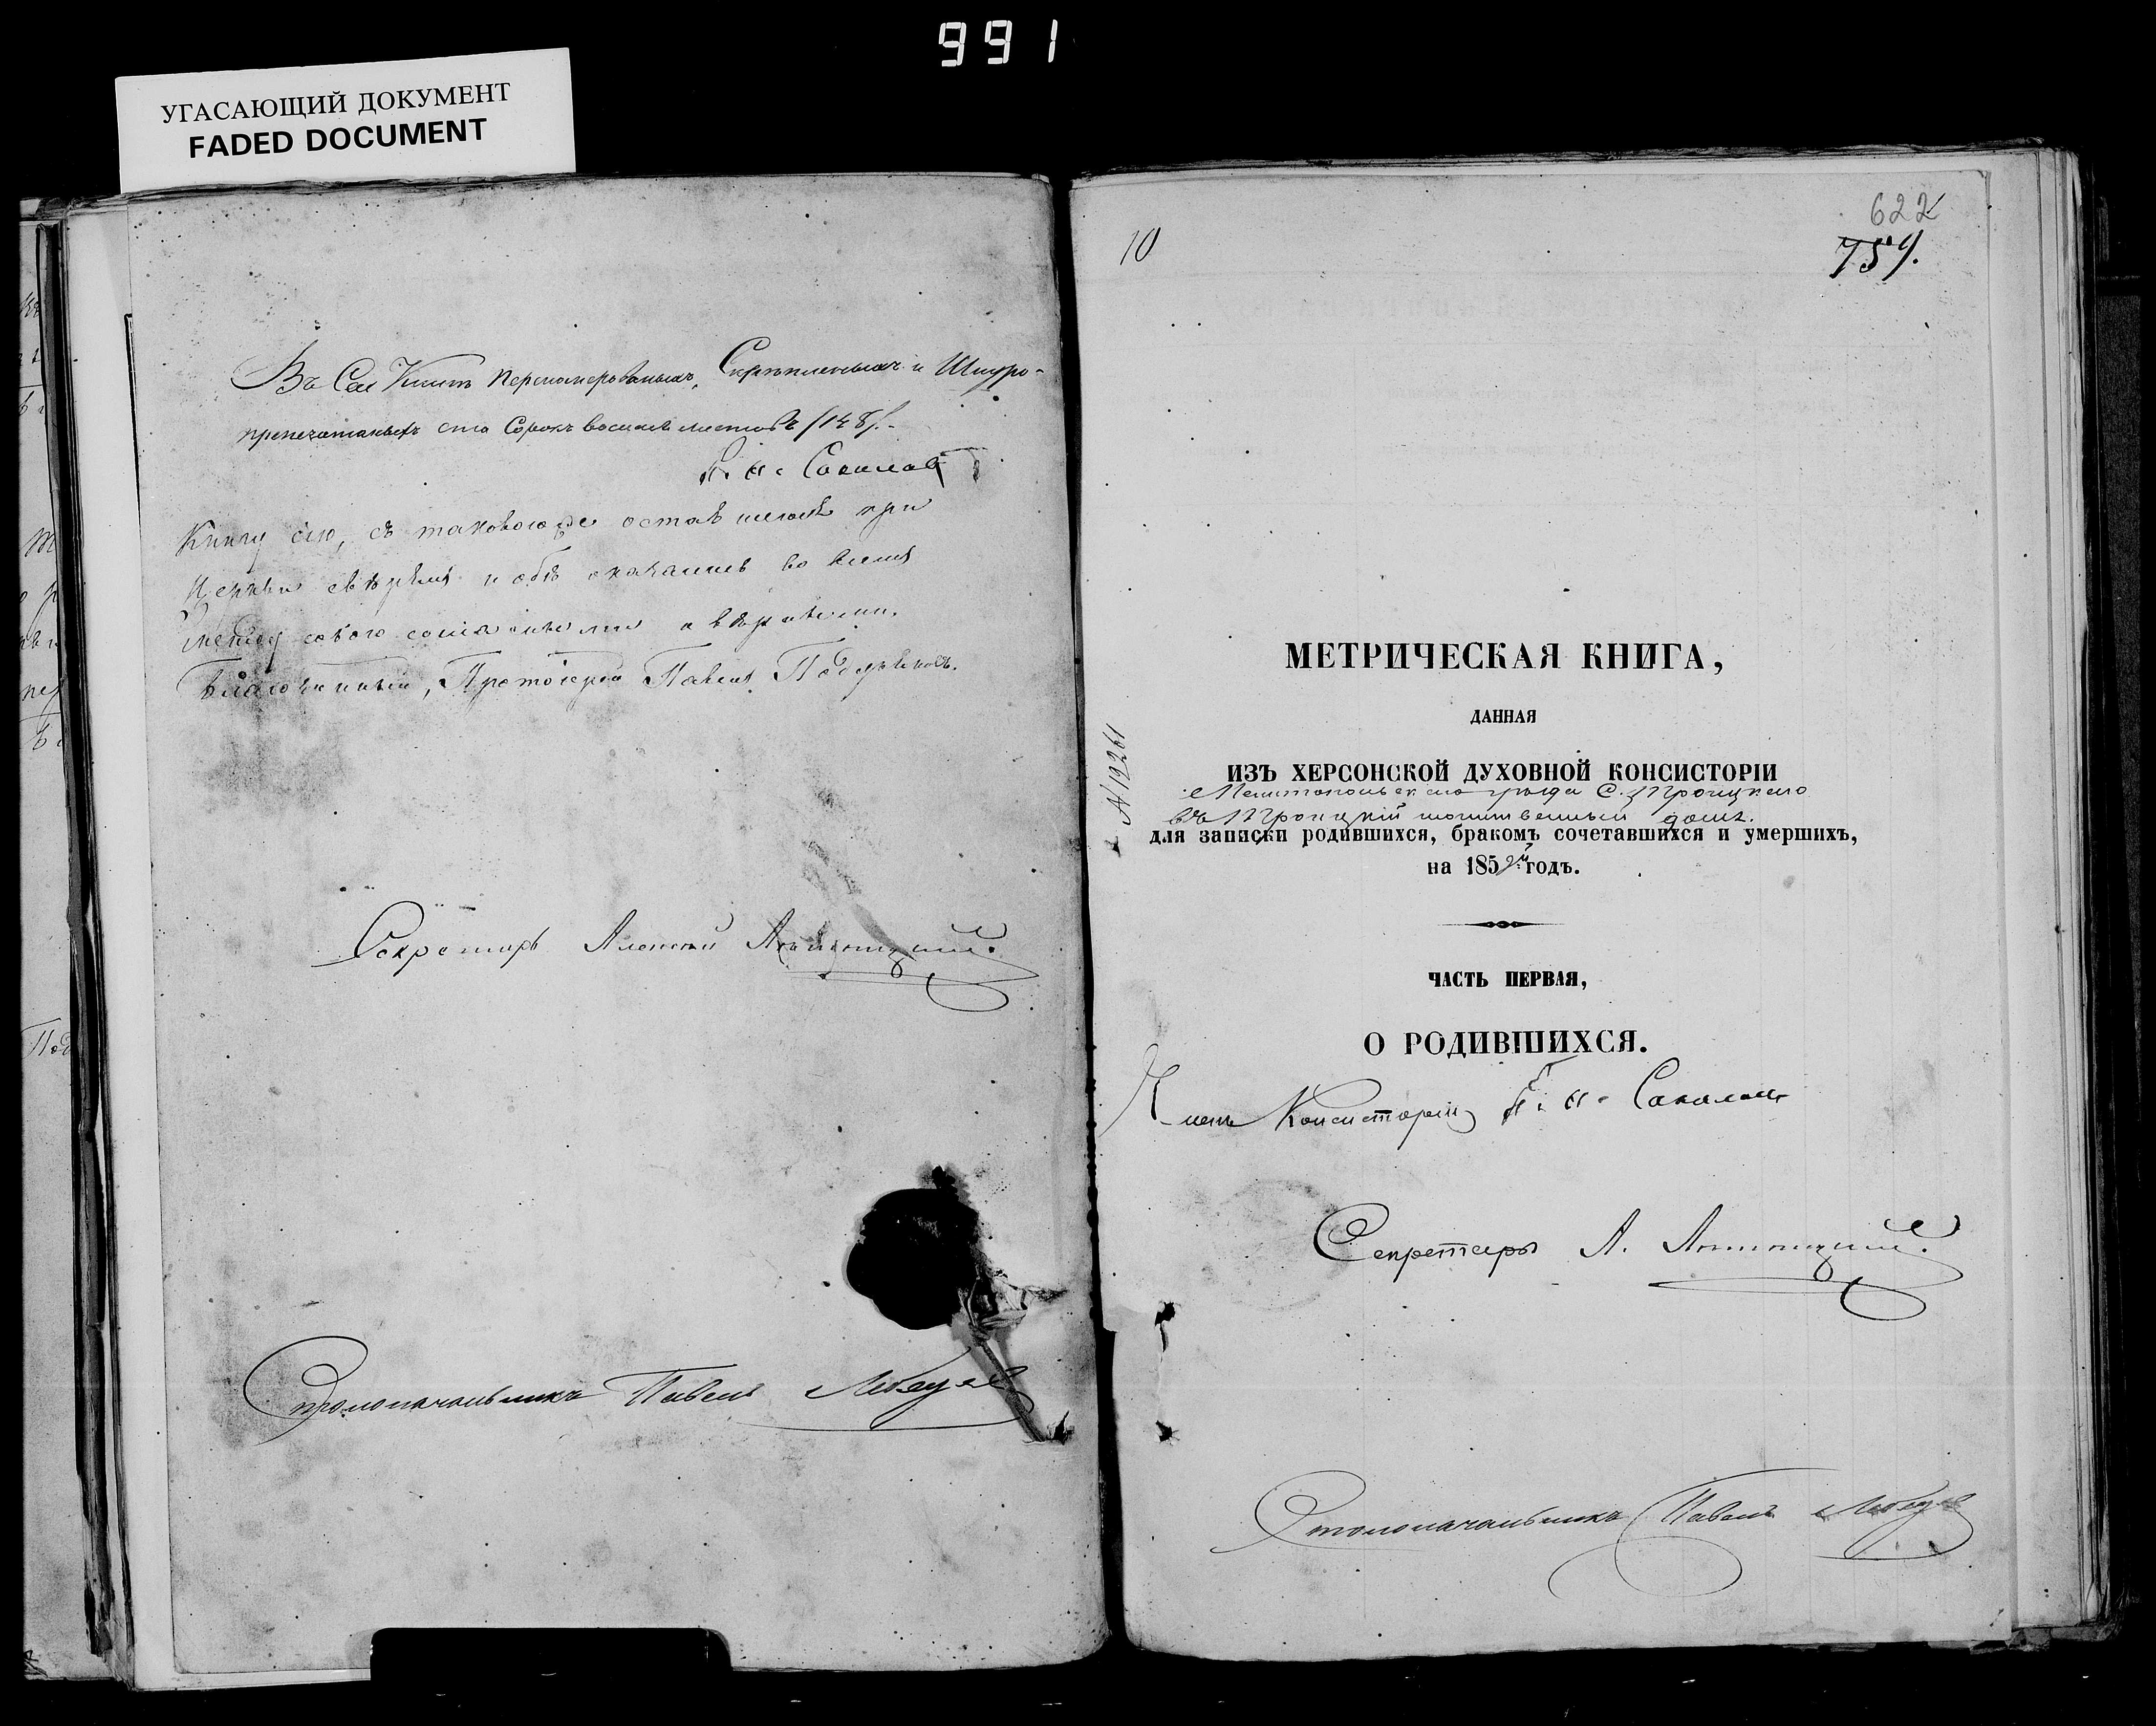 991
УГАСАЮЩИЙ ДОКУМЕНТ
FADED DOCUMENT
Въ Сей Книгѣ перенумерованныхъ, Скрѣпленныхъ и Шнуро-
припечатанныхъ сто Сорокъ восемь листовъ /148/.
П. И. Соколовъ
Книгу сію, съ таковою же оставшеюся при
Церкви свѣрялъ и обѣ оказались во всемъ
между собою согласными и вѣрными.
Благочинный, Протоіерей Павелъ
Секретарь Алексѣй
Столоначальникъ Павелъ Лебедев
10
622
759.
№ 19261
МЕТРИЧЕСКАЯ КНИГА,
ДАННАЯ
ИЗЪ ХЕРСОНСКОЙ ДУХОВНОЙ КОНСИСТОРІИ
Мелитопольскаго уѣзда С. Троицкаго
въ Троицкій молитвенный домъ.
для записки родившихся, бракомъ сочетавшихся и умершихъ,
на 1859й годъ.
ЧАСТЬ ПЕРВАЯ,
О РОДИВШИХСЯ.
Членъ Консисторіи П. И. Соколовъ
Секретарь А.
Столоначальникъ Павелъ Лебедев